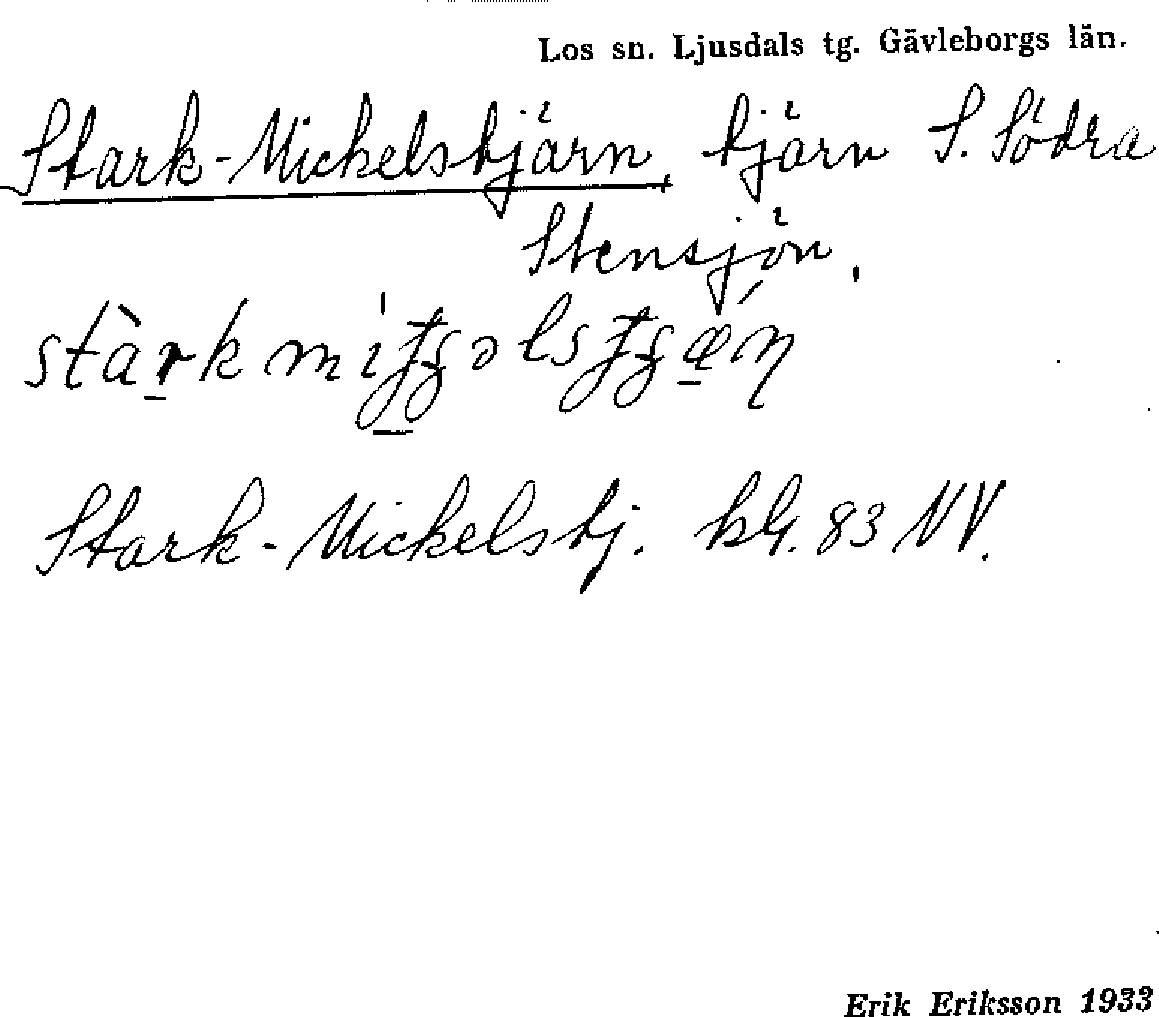 Los sn. Ljusdals tg. Gävleborgs län.
Stark-Mickelstjärn, tjärn S. Södra
Stensjön.
Stark-Mickelstj. kbl. 83 NV.
Erik Eriksson 1933